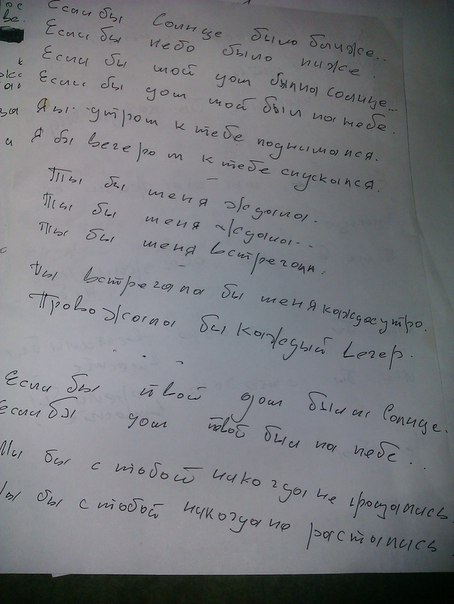 Если бы Солнце было ближе...
Если бы небо было ниже.
Если бы твой дом был на Солнце...
Если бы дом твой был на небе.
Я бы утром к тебе поднимался.
Я бы вечером к тебе спускался.
Ты бы меня ждала.
Ты бы меня ждала...
Ты бы меня встречала.
Ты встречала бы меня каждое утро.
Провожала бы каждый вечер.
. . .
Если бы твой дом был на Солнце.
Если бы дом твой был на небе...
Мы бы с тобой никогда не прощались
Мы бы с тобой никогда не растались